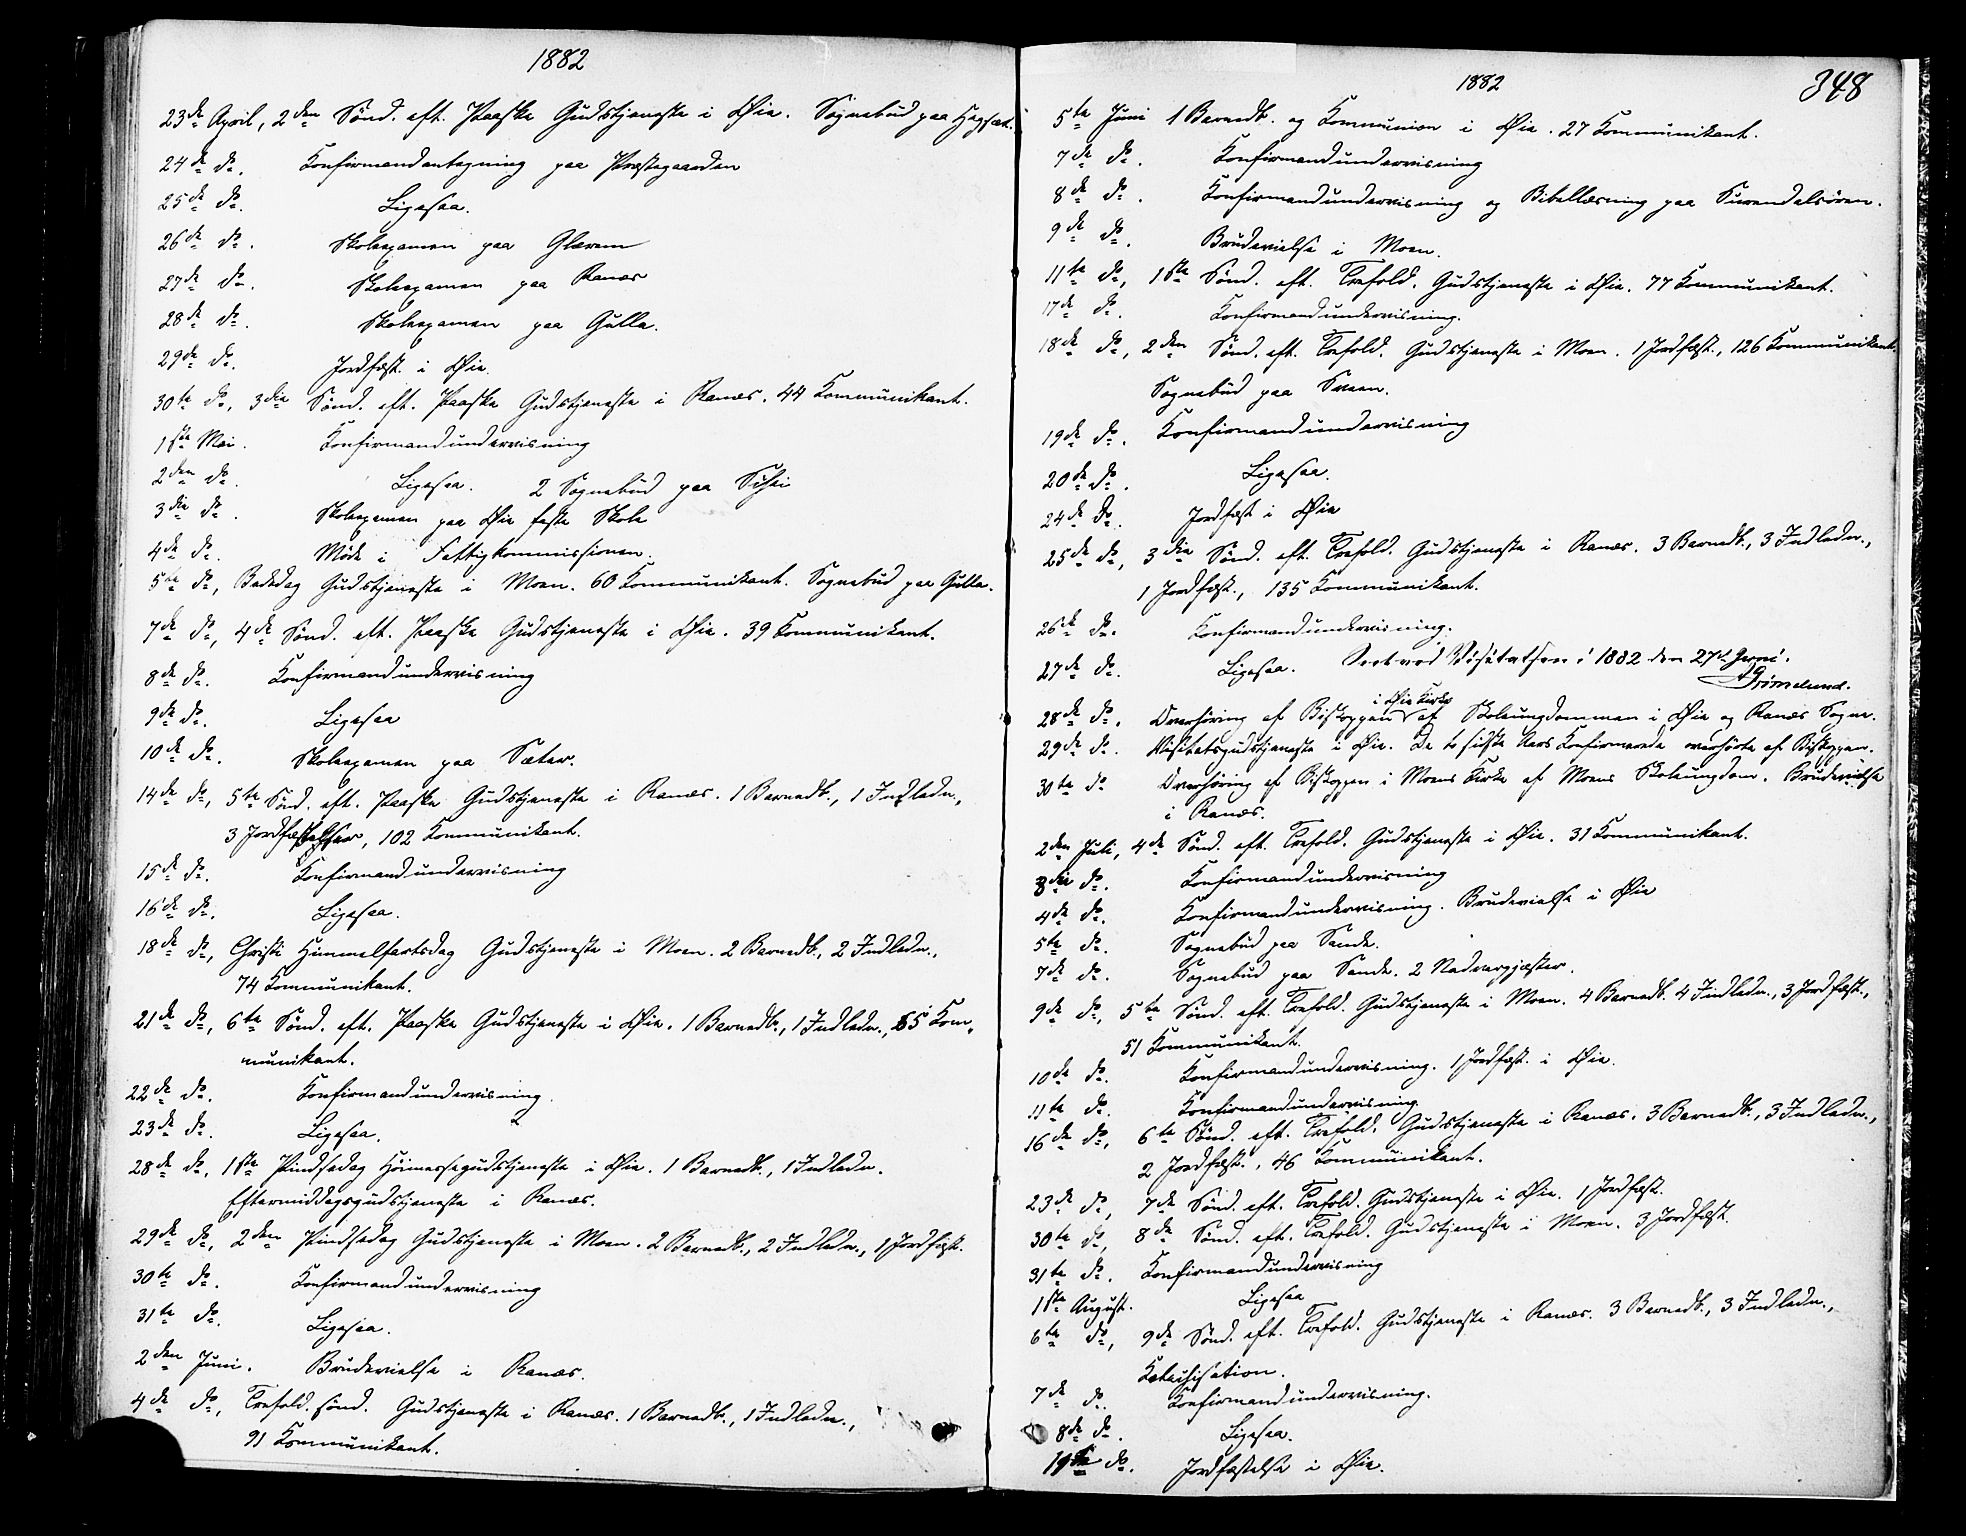 1882
23de April, 2den Sønd. eft. Paaske Gudstjeneste i Øie. Sognebud paa Hegset.
24de do. Konfirmandantegning paa Præstegaarden
25de do. Ligesaa.
26de do. Skoleexamen paa Glærem
27de do. Skoleexamen paa Ranæs
28de do. Skoleexamen paa Gulla.
29de do. Jordfæst. i Øie.
30te do, 3die Sønd. eft. Paaske Gudstjeneste i Ranæs. 44 Kommunikant.
1ste Mai. Konfirmandundervisning
2den do. Ligesaa. 2 Sognebud paa
3die do. Skoleexamen paa Øie faste Skole
4de do. Møde i Fattigkommissionen.
5te do, Bededag Gudstjeneste i Moen. 60 Kommunikant. Sognebud paa Gulla.
7de do, 4de Sønd. eft. Paaske Gudstjeneste i Øie. 39 Kommunikant.
8de do. Konfirmandundervisning
9de do. Ligesaa
10de do. Skoleexamen paa Sæter.
14de do, 5te Sønd. eft. Paaske Gudstjeneste i Ranæs. 1 Barnedb., 1 Indledn.,
3 Jordfæstelser, 102 Kommunikant.
15de do. Konfirmandundervisning
16de do. Ligesaa.
18de do, Christi Himmelfartsdag Gudstjeneste i Moen. 2 Barnedb., 2 Indledn.,
74 Kommunikant.
21de do, 6te Sønd. eft. Paaske Gudstjeneste i Øie. 1 Barnedb., 1 Indledn., 65 Kom-
munikant.
22de do. Konfirmandundervisning.
23de do. Ligesaa.
28de do, 1ste Pindsedag Høimessegudstjeneste i Øie. 1 Barnedb., 1 Indledn.
Eftermiddagsgudstjeneste i Ranæs.
29de do, 2den Pindsedag Gudstjeneste i Moen. 2 Barnedb., 2 Indledn., 1 Jordfæst.
30te do. Konfirmandundervisning
31te do. Ligesaa.
2den Juni. Brudevielse i Ranæs.
4de do, Trefold. sønd. Gudstjeneste i Ranæs. 1 Barnedb., 1 Indledn.,
91 Kommunikant.
1882
348
5te Juni 1 Barnedb. og Kommunion i Øie. 27 Kommunikant.
7de do. Konfirmandundervisning
8de do. Konfirmandundervisning og Bibellæsning paa Surendalsøren.
9de do. Brudevielse i Moen.
11te do, 1ste Sønd. eft. Trefold. Gudstjeneste i Øie. 77 Kommunikant.
17de do. Konfirmandundervisning.
18de do, 2den Sønd. eft. Trefold. Gudstjeneste i Moen. 1 Jordfæst., 126 Kommunikant.
Sognebud paa Sveen.
19de do. Konfirmandundervisning
20de do. Ligesaa.
24de do. Jordfæst i Øie
25de do, 3die Sønd. eft. Trefold. Gudstjeneste i Ranæs. 3 Barnedb., 3 Indledn.,
1 Jordfæst., 135 Kommunikant.
26de do. Konfirmandundervisning.
27de do. Ligesaa. Seet ved Visitatsen i 1882 den 27de Juni.
Grimelund.
i Øie Kirke
28de do. Overhøring af Biskoppen af Skoleungdommen i Øie og Ranæs Sogne.
29de do. Visitatsgudstjeneste i Øie. De to sidste Aars Konfirmerede overhørte af Biskoppen.
30te do Overhøring af Biskoppen i Moens Kirke af Moens Skoleungdom. Brudevielse
i Ranæs.
2den Juli, 4de Sønd. eft. Trefold. Gudstjeneste i Øie. 31 Kommunikant.
3die do. Konfirmandundervisning
4de do. Konfirmandundervisning. Brudevielse i Øie
5te do. Sognebud paa Sande.
7de do. Sognebud paa Sande. 2 Nadvergjæster.
9de do, 5te Sønd. eft. Trefold. Gudstjeneste i Moen. 4 Barnedb. 4 Indledn., 3 Jordfæst.,
51 Kommunikant.
10de do. Konfirmandundervisning. 1 Jordfæst. i Øie.
11te do. Konfirmandundervisning.
16de do, 6te Sønd. eft. Trefold. Gudstjeneste i Ranæs. 3 Barnedb., 3 Indledn.,
2 Jordfæst., 46 Kommunikant.
23de do, 7de Sønd. eft. Trefold. Gudstjeneste i Øie. 1 Jordfæst.
30te do, 8de Sønd. eft. Trefold. Gudstjeneste i Moen. 3 Jordfæst.
31te do. Konfirmandundervisning
1ste August. Ligesaa
6te do, 9de Sønd. eft. Trefold. Gudstjeneste i Ranæs. 3 Barnedb., 3 Indledn.,
Katechisation.
7de do. Konfirmandundervisning.
8de do. Ligesaa.
do. Jordfæstelse i Øie.